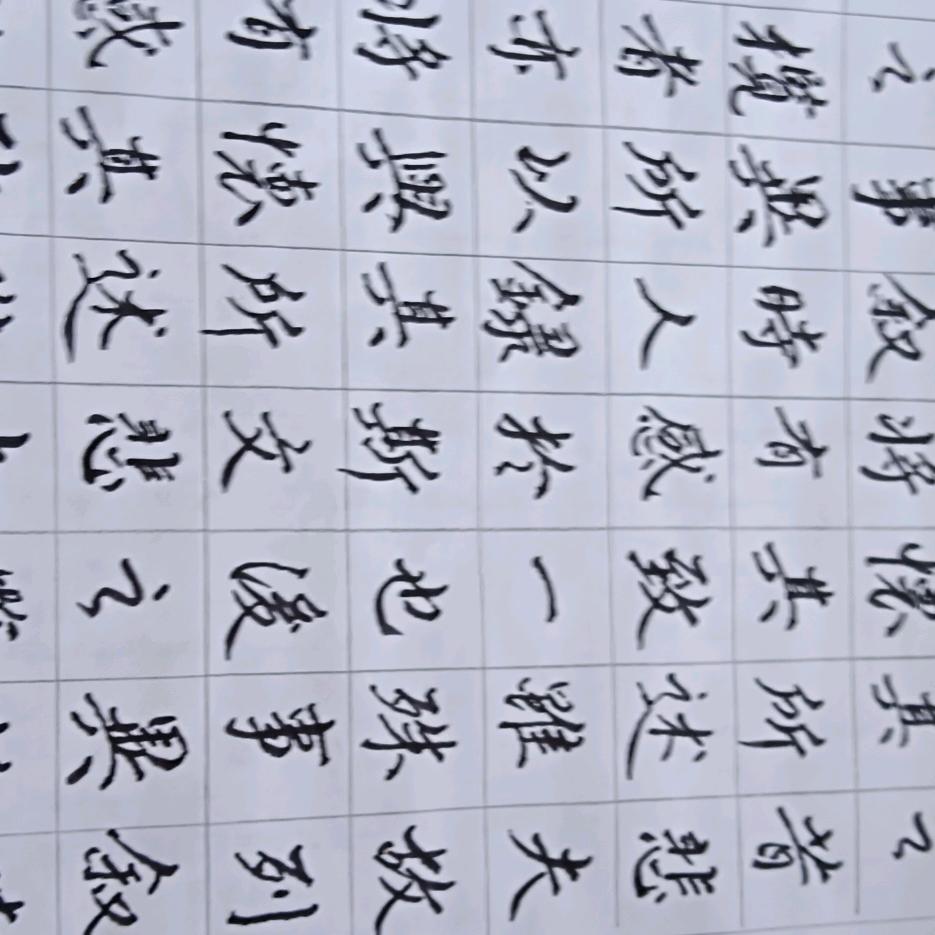 之昔悲夫故列敘
其所述雖殊事異
懷其致一也後之
將有感於斯文悲
敘時人錄其所述
事異所以興懷其
之攬者亦將有感